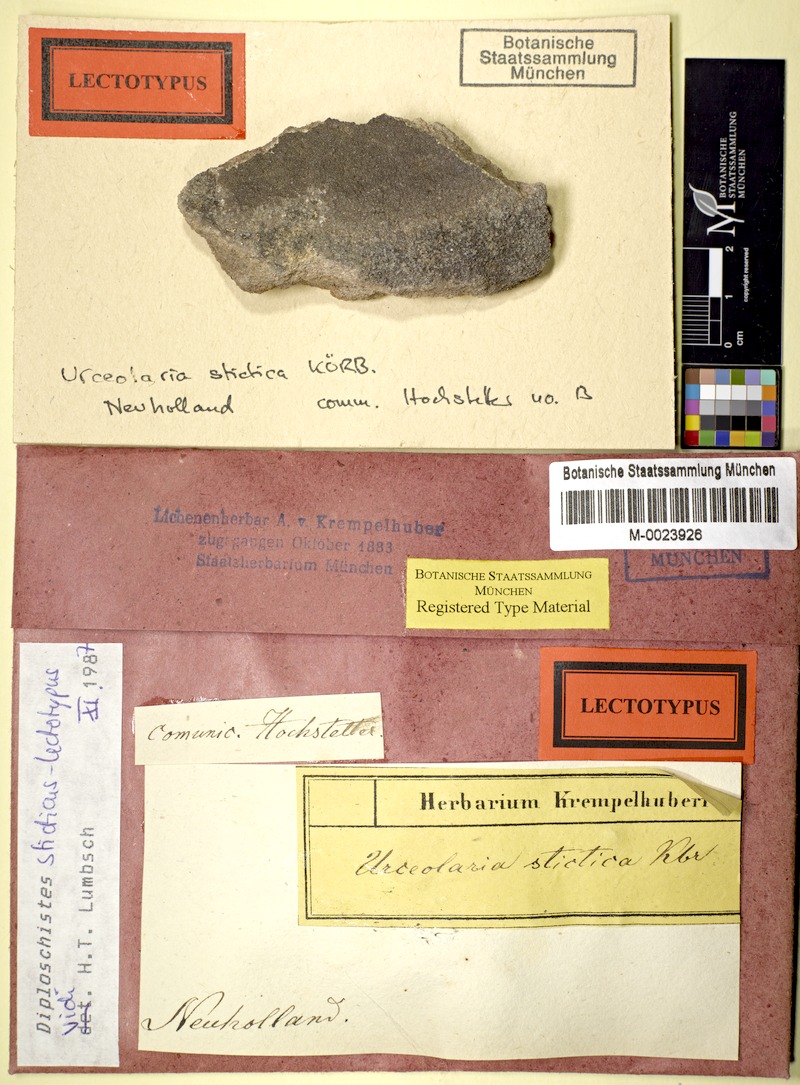 LECTOTYPUS
Botanische
Staatssammlung
München
BOTANISCHE
STAATSSAMMLUNG
MÜNCHEN
copyright reserved
0 1 2
cm
Urceolaria stictica KÖRB.
Neuholland comm. Hochstetter no. B
Botanische Staatssammlung München
M-0023926
MÜNCHEN
Lichenenherbar A. v. Krempelhuber
zugegangen Oktober 1883
Staatsherbarium München
BOTANISCHE STAATSSAMMLUNG
MÜNCHEN
Registered Type Material
LECTOTYPUS
Diploschistes sticticus - lectotypus
vidi
det. H.T. Lumbsch XI.1987
comunic. Hochstetter.
Herbarium Krempelhuberi
Urceolaria stictica Kbr.
Neuholland.